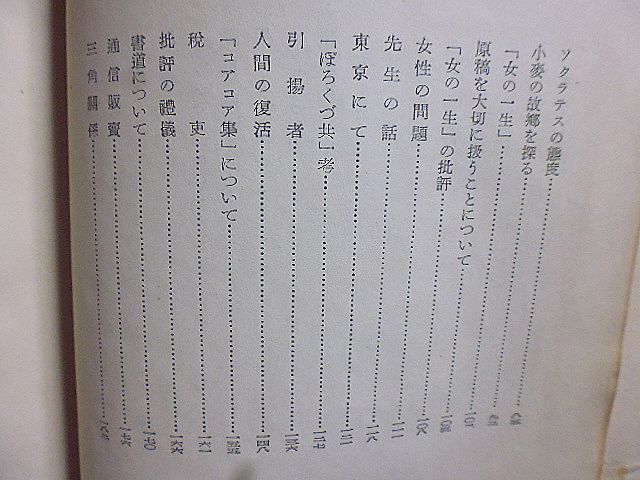 ソクラテスの態度
小麥の故鄕を探る
「女の一生」
原稿を大切に扱うことについて
「女の一生」の批評
女性の問題……一〇八
先生の話……一一一
東京にて……一一八
「ぼろくづ共」考……一二一
引揚者
人間の復活……一四八
「コアコア集」について
稅吏……一六一
批評の禮儀……一六六
書道について……一七〇
通信販賣……一七六
三角關係